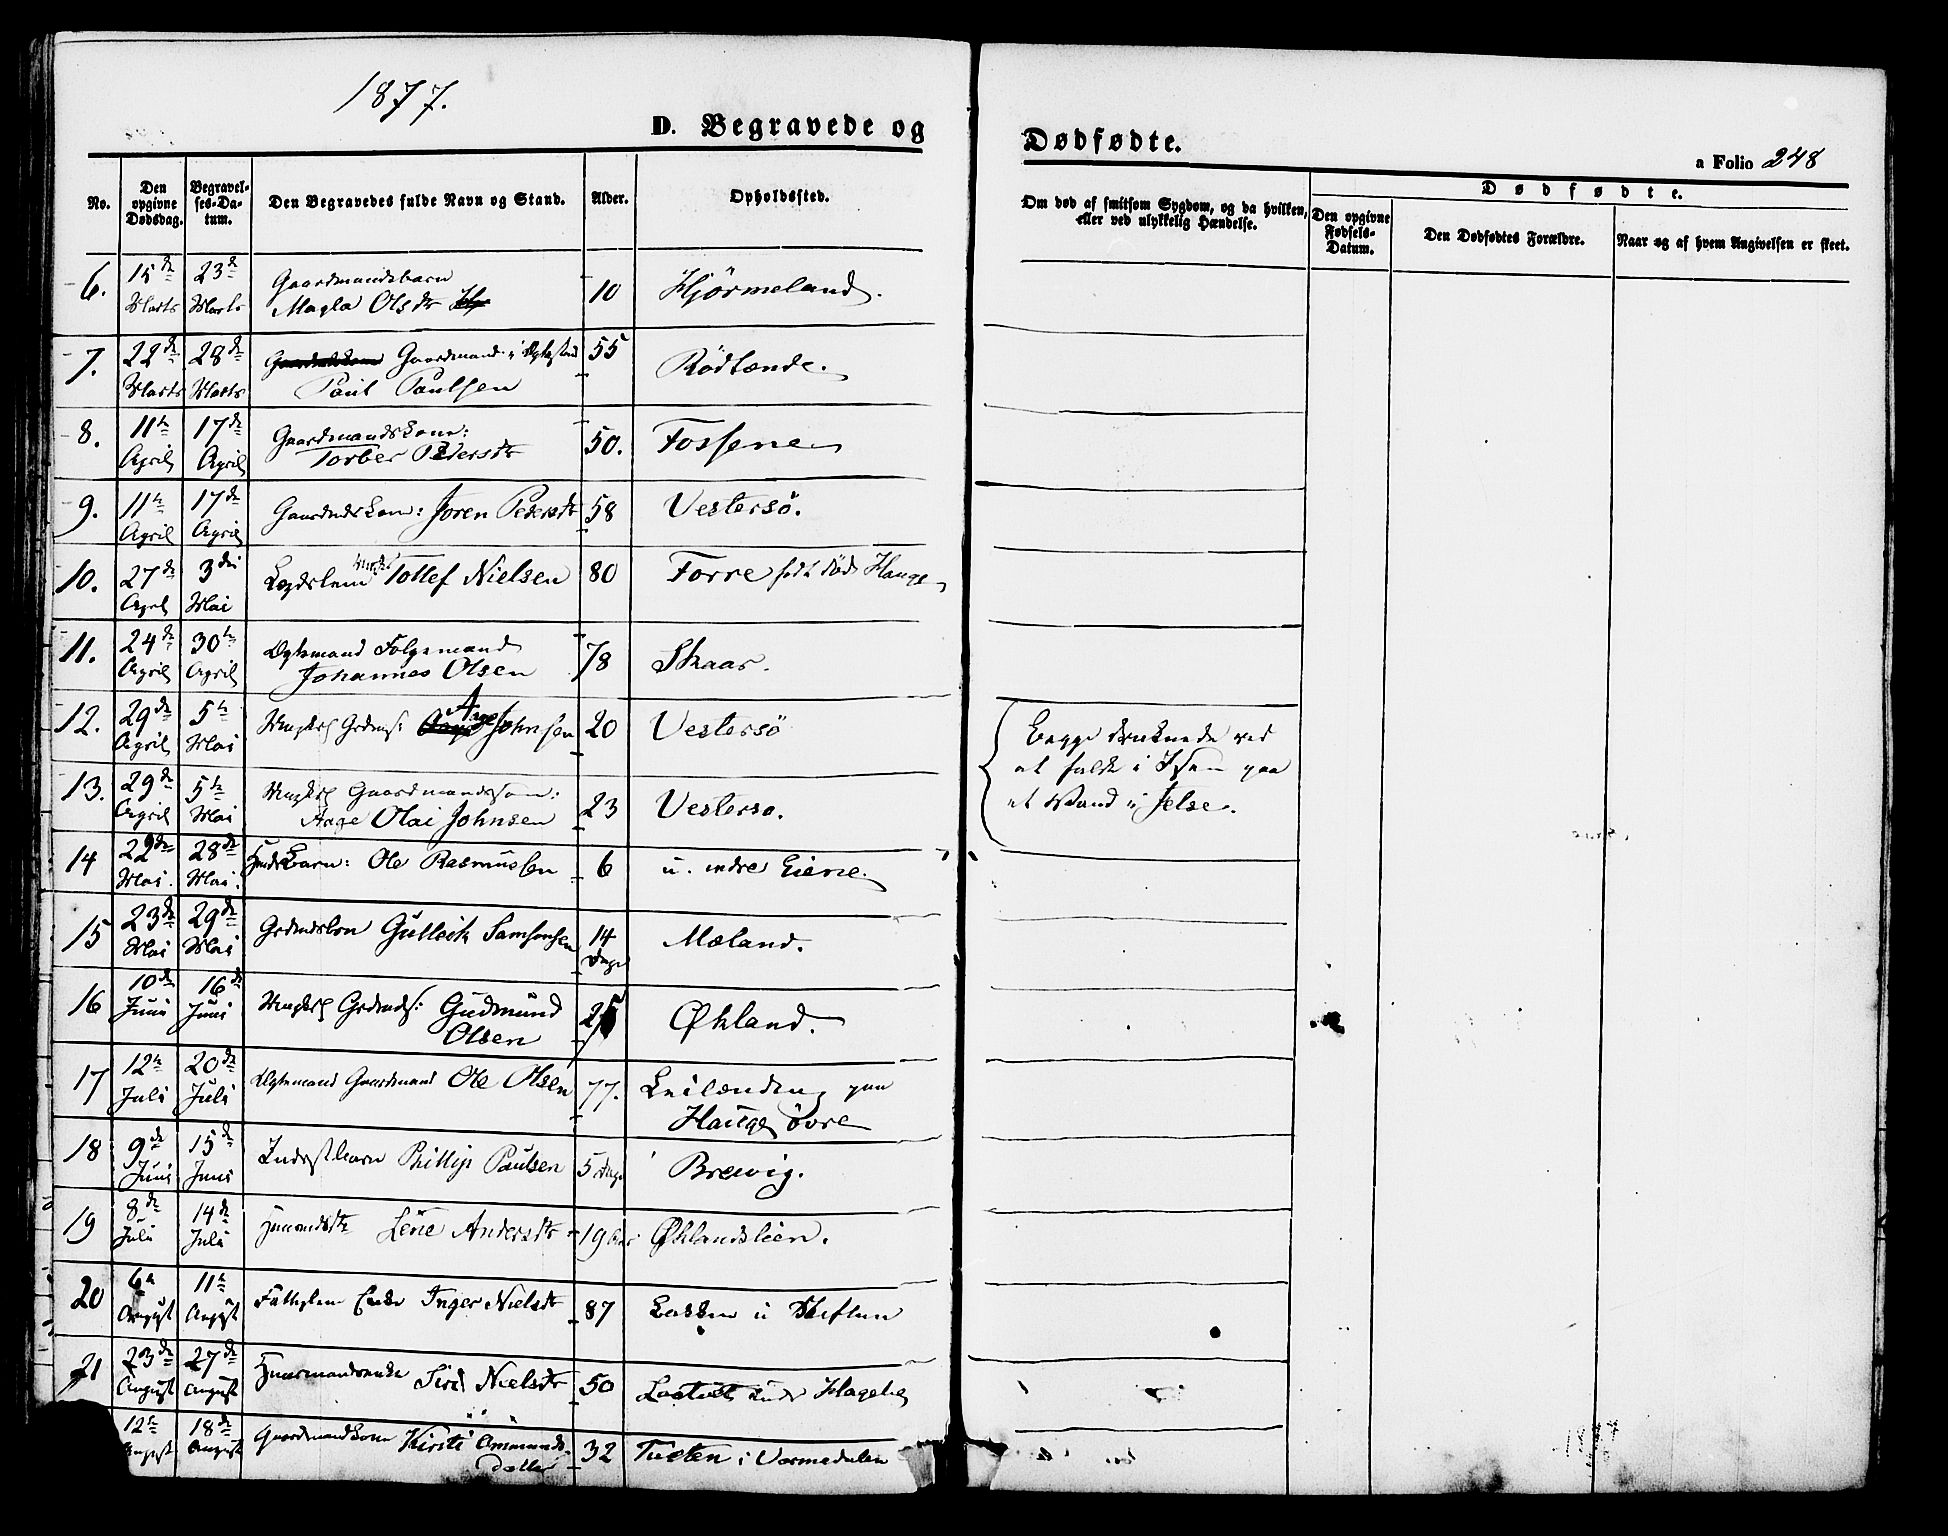 1877.
D. Begravede og
Dødfødte.
a Folio 248
No.
Den opgivne Dødsdag.
Begravelses-Datum.
Den Begravedes fulde Navn og Stand.
Alder.
Opholdssted.
Om død af smitsom Sygdom, og da hvilken,
eller ved ulykkelig Hændelse.
Dødfødte.
Den opgivne Fødsels-Datum.
Den Dødfødtes Forældre.
Naar og af hvem Angivelsen er skeet.
6. 15de Marts 23de Marts Gaardmandsbarn
Magla Olsdr 10 Hjörmeland.
7. 22de Marts 28de Marts Gaardmand i
Paul Paulsen 55 Rödlende.
8. 11te April 17de April Gaardmandskone:
Torber Pedersdr 50. Fossene
9. 11te April 17de April Gaardmdskone: Joren Pedersdr 58 Vestersö.
10. 27de April 3die Mai Lægdslem Tollef Nielsen 80 Forre født død Hauge
11. 24de April 30te April Dgtsmand Folgemand
Johannes Olsen 78 Skaar.
12. 29de April 5te Mai Ungkarl Grdmds: Aage Johnsen 20 Vestersö
13. 29de April 5te Mai Ungkarl Gaardmandssøn:
Aage Olai Johnsen 23 Vesterso.
Begge druknede ved
at falde i Isen paa
et Vand i Jelse.
14 22de Mai. 28de Mai. Hmdsbarn: Ole Rasmussen 6 u. indre Eiene
15 23de Mai 29de Mai Grdmdsbrn Gulleik Samsonsen 14 Dage Mæland.
16 10de Juni 16de Juni Ungkarl Grdmds: Gudmund
Olsen Øhland.
17 12te Juli 20de Juli Dgtsmand Gaardmand Ole Olsen 77. Leilænding paa
Hauge övre
18 9de Juni 15de Juni Inderstbarn Phillip Paulsen 5 Dage Brewig.
19 8de Juli 14de Juli Husmandsdtr Lene Andersdr 19 Aar Øhlandslien.
20 6te August 11te August Fattiglem Enke Inger Nielsdr 87 Bakken u
21 23de August 27de August Huusmandsenke Siri Nielsdr 50 under
12te August 18de August Gaardmandskone Kirsti Amunds-
datter 32 Tveten i Vormedalen